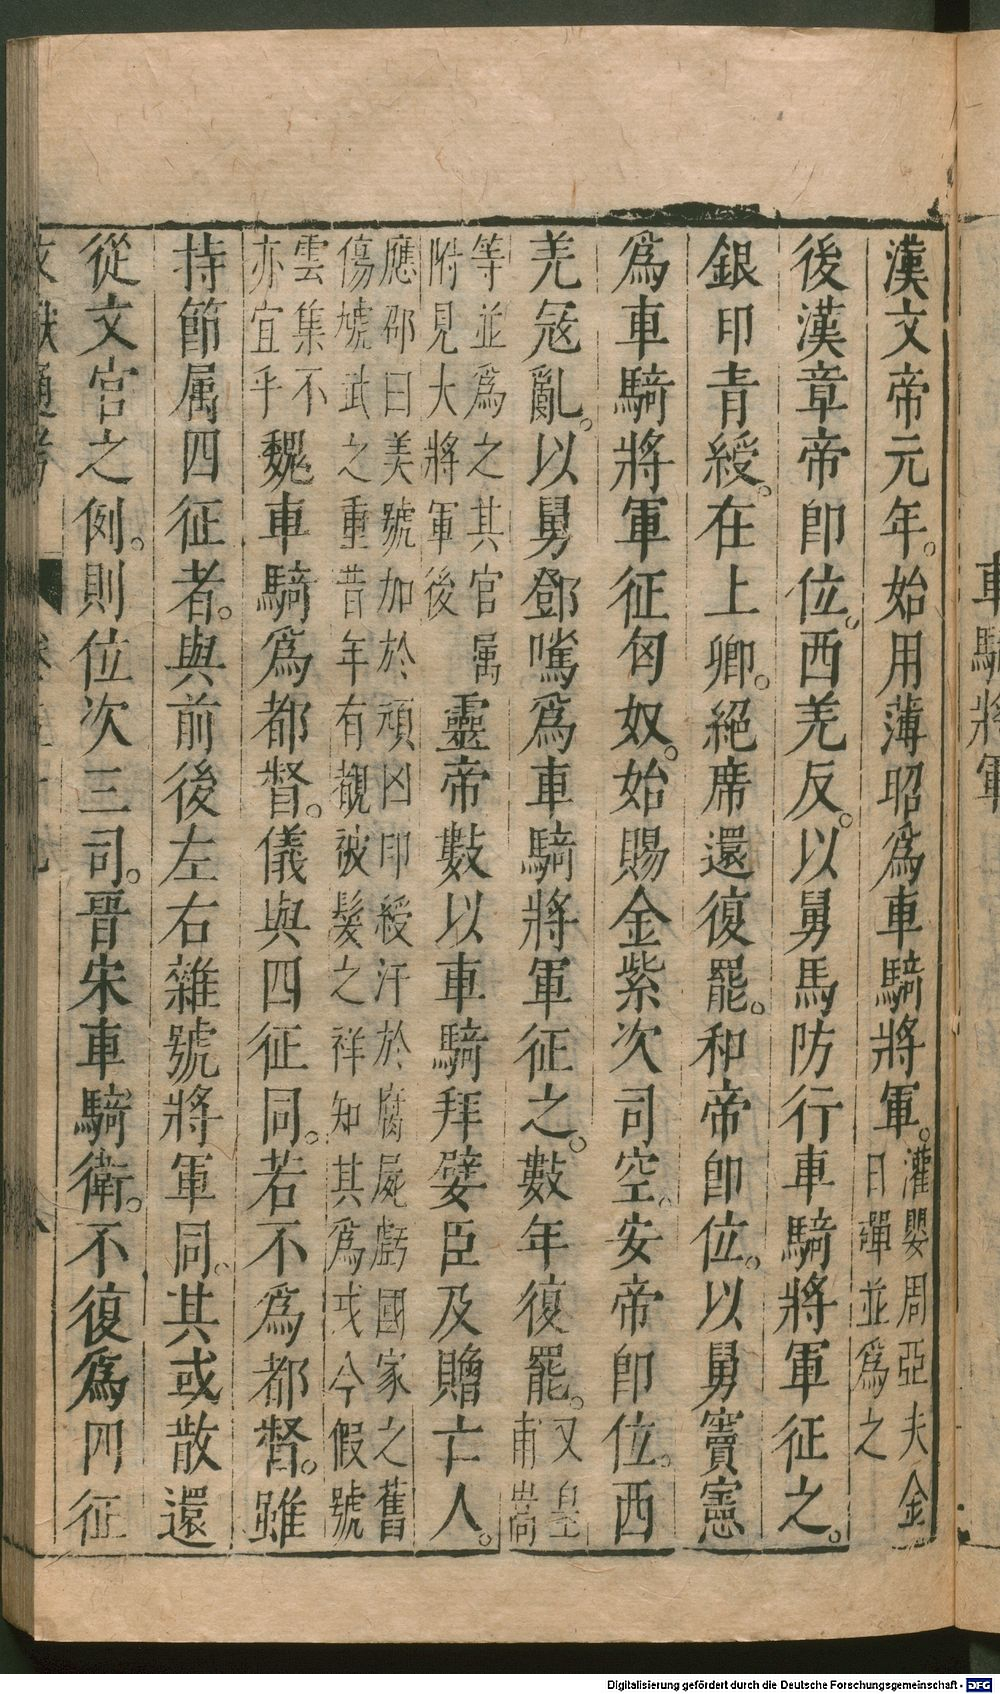 車騎將軍
漢文帝元年。始用薄昭爲車騎將軍。灌嬰周亞夫金日磾並爲之
後漢章帝卽位。西羌反。以舅馬防行車騎將軍征之。
銀印青綬。在上卿。絕席還復罷。和帝卽位。以舅竇憲
爲車騎將軍征匈奴。始賜金紫次司空。安帝卽位。西
羌寇亂。以舅鄧騭爲車騎將軍征之。數年復罷。又皇甫嵩
等並爲之其官属附見大將軍後 靈帝數以車騎拜嬖臣及贈亡人。
應邵曰美號加於頑凶印綬汙於腐屍戲國家之舊傷虓武之重昔年有覩被髮之祥知其爲戎今假號
雲集不亦宜乎魏車騎爲都督。儀與四征同。若不爲都督。雖
持節属四征者。與前後左右雜號將軍同。其或散還
從文官之例。則位次三司。晉宋車騎衛。不復爲四征
文獻通考 卷五十九 八
Digitalisierung gefördert durch die Deutsche Forschungsgemeinschaft - DFG